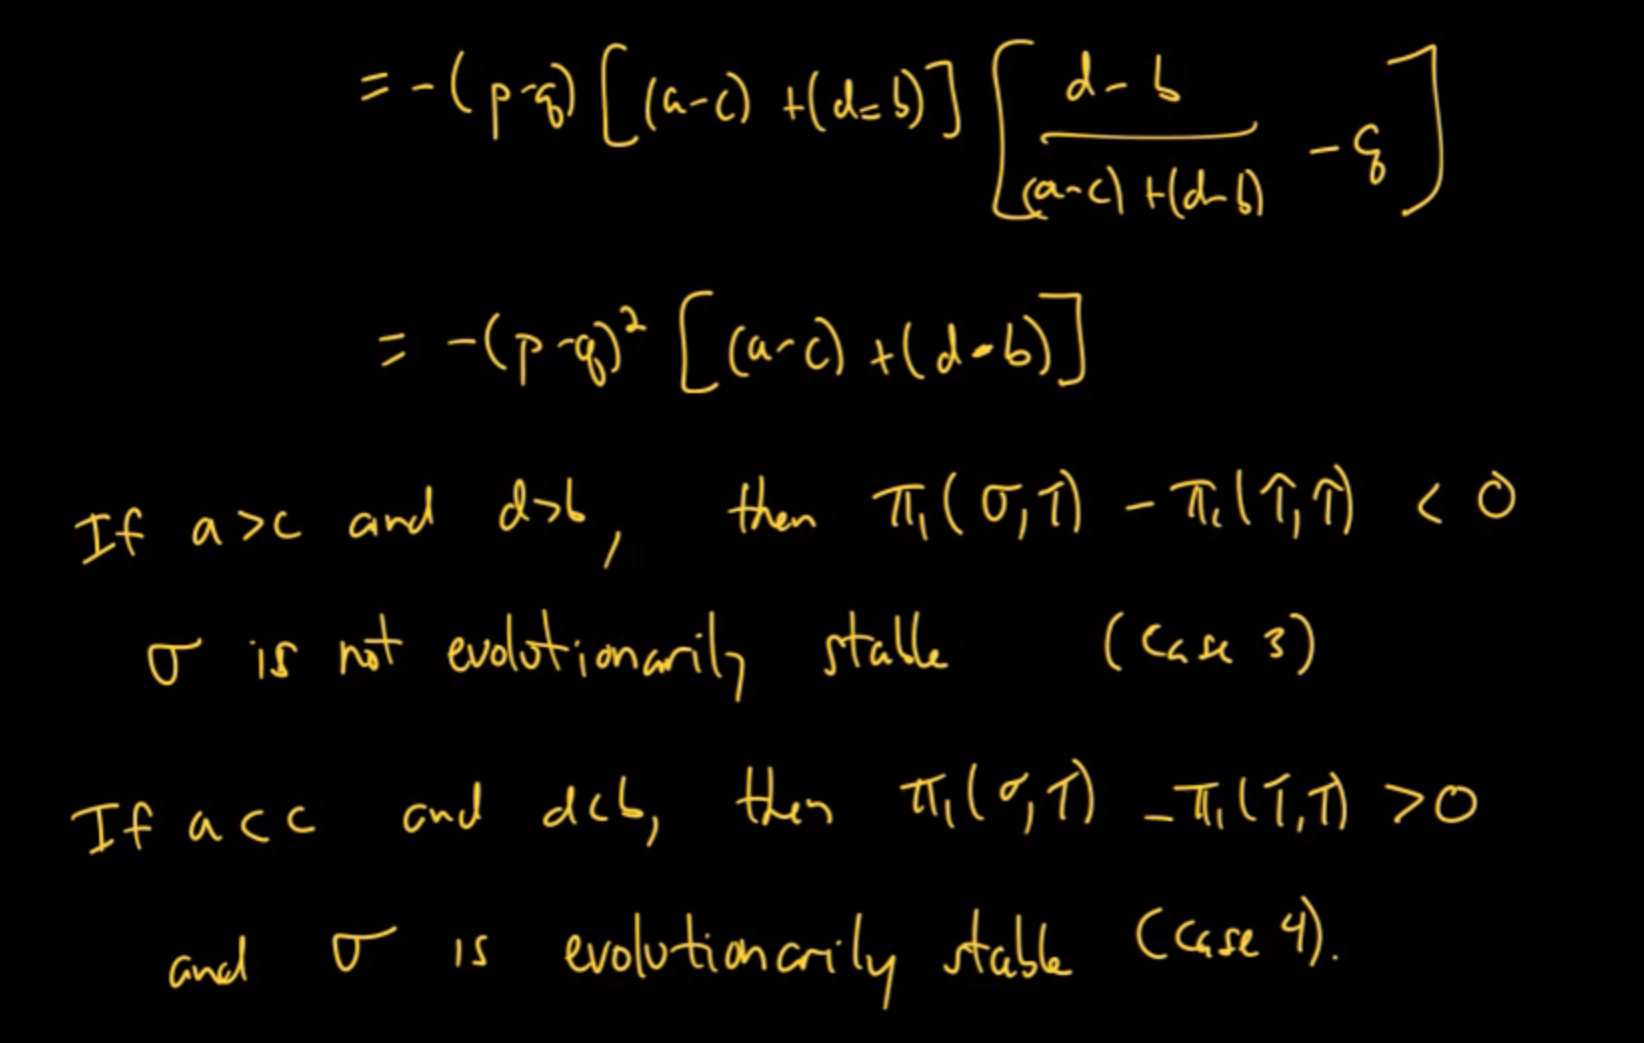 = -(p-q) [(a-c) +(d-b)] [ (d-b) / ((a-c) +(d-b)) - q ]
= -(p-q)² [(a-c) +(d-b)]
If a>c and d>b, then π₁(σ,τ) - π₁(τ,τ) < 0
σ is not evolutionarily stable (case 3)
If a<c and d<b, then π₁(σ,τ) - π₁(τ,τ) >0
and σ is evolutionarily stable (case 4).